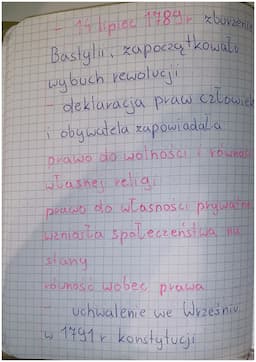 - 14 lipiec 1789 r zburzenie
Bastylii, zapoczątkowało
wybuch rewolucji
- deklaracja praw człowieka
i obywatela zapowiadała
prawo do wolności i równości
własnej religi
prawo do własności prywatnej
wzniosła społeczeństwa na
stany
równość wobec prawa
- uchwalenie we Wrześniu
w 1791 r konstytucji